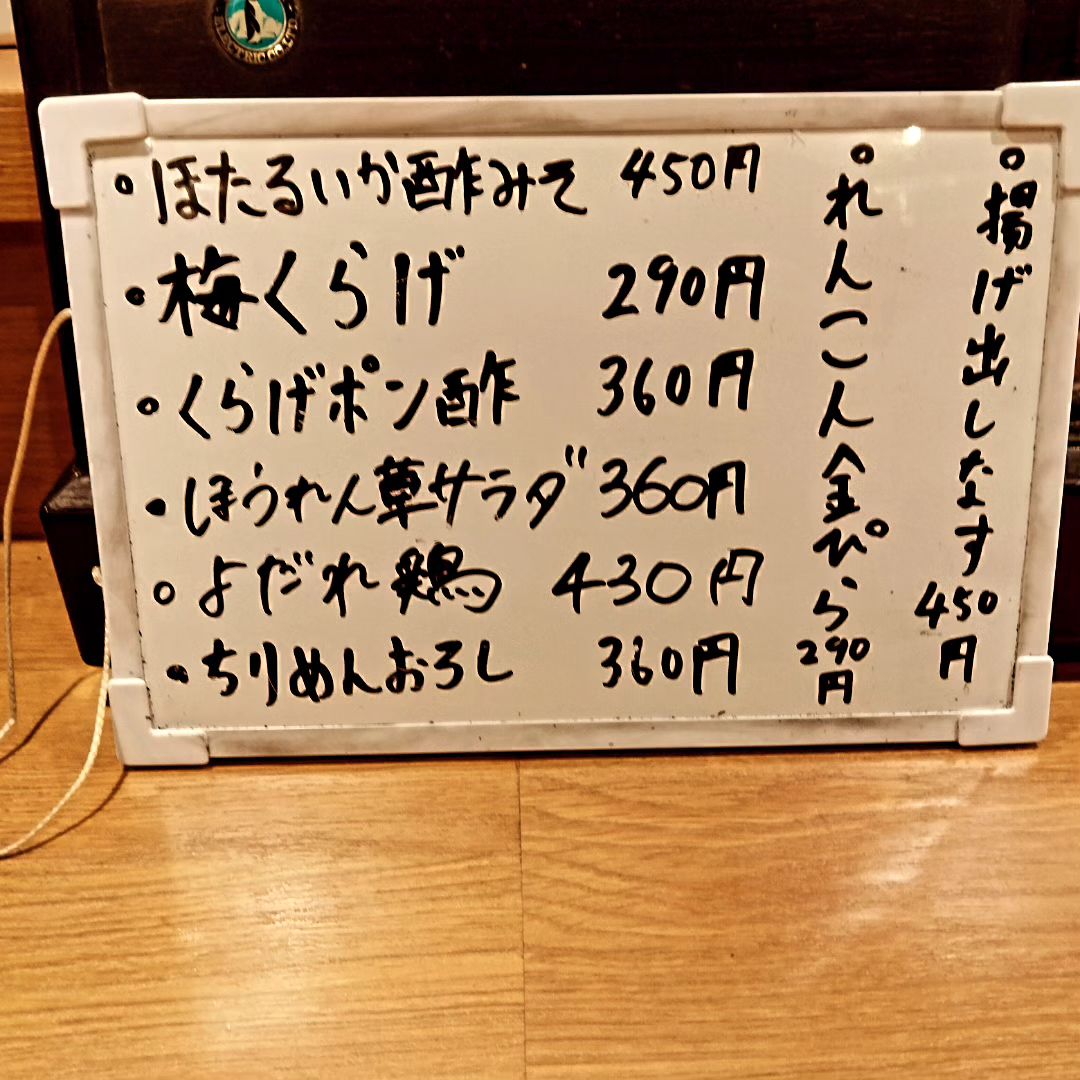 • ほたるいか酢みそ 450円
• 梅くらげ 290円
• くらげポン酢 360円
• ほうれん草サラダ 360円
○ よだれ鶏 430円
• ちりめんおろし 360円
○揚げ出しなす 450円
○れんこん金ぴら 290円
ELECTRIC CO.LTD.